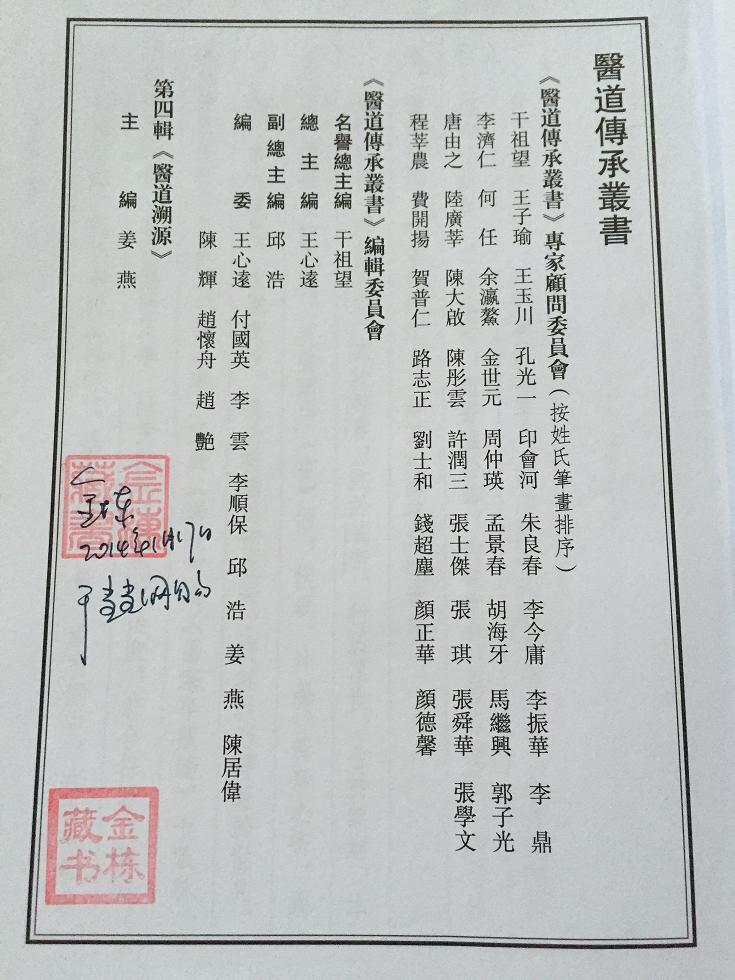 醫道傳承叢書
《醫道傳承叢書》專家顧問委員會(按姓氏筆畫排序)
干祖望 王子瑜 王玉川 孔光一 印會河 朱良春 李今庸 李振華 李 鼎
李濟仁 何 任 余瀛鰲 金世元 周仲瑛 孟景春 胡海牙 馬繼興 郭子光
唐由之 陸廣莘 陳大啟 陳彤雲 許潤三 張士傑 張 琪 張舜華 張學文
程莘農 費開揚 賀普仁 路志正 劉士和 錢超塵 顏正華 顏德馨
《醫道傳承叢書》編輯委員會
名譽總主編 干祖望
總主編 王心遠
副總主編 邱 浩
編 委 王心遠 付國英 李 雲 李順保 邱 浩 姜 燕 陳居偉
陳 輝 趙懷舟 趙 艷
第四輯《醫道溯源》
主 編 姜 燕
金栋
2014年
金栋
藏书